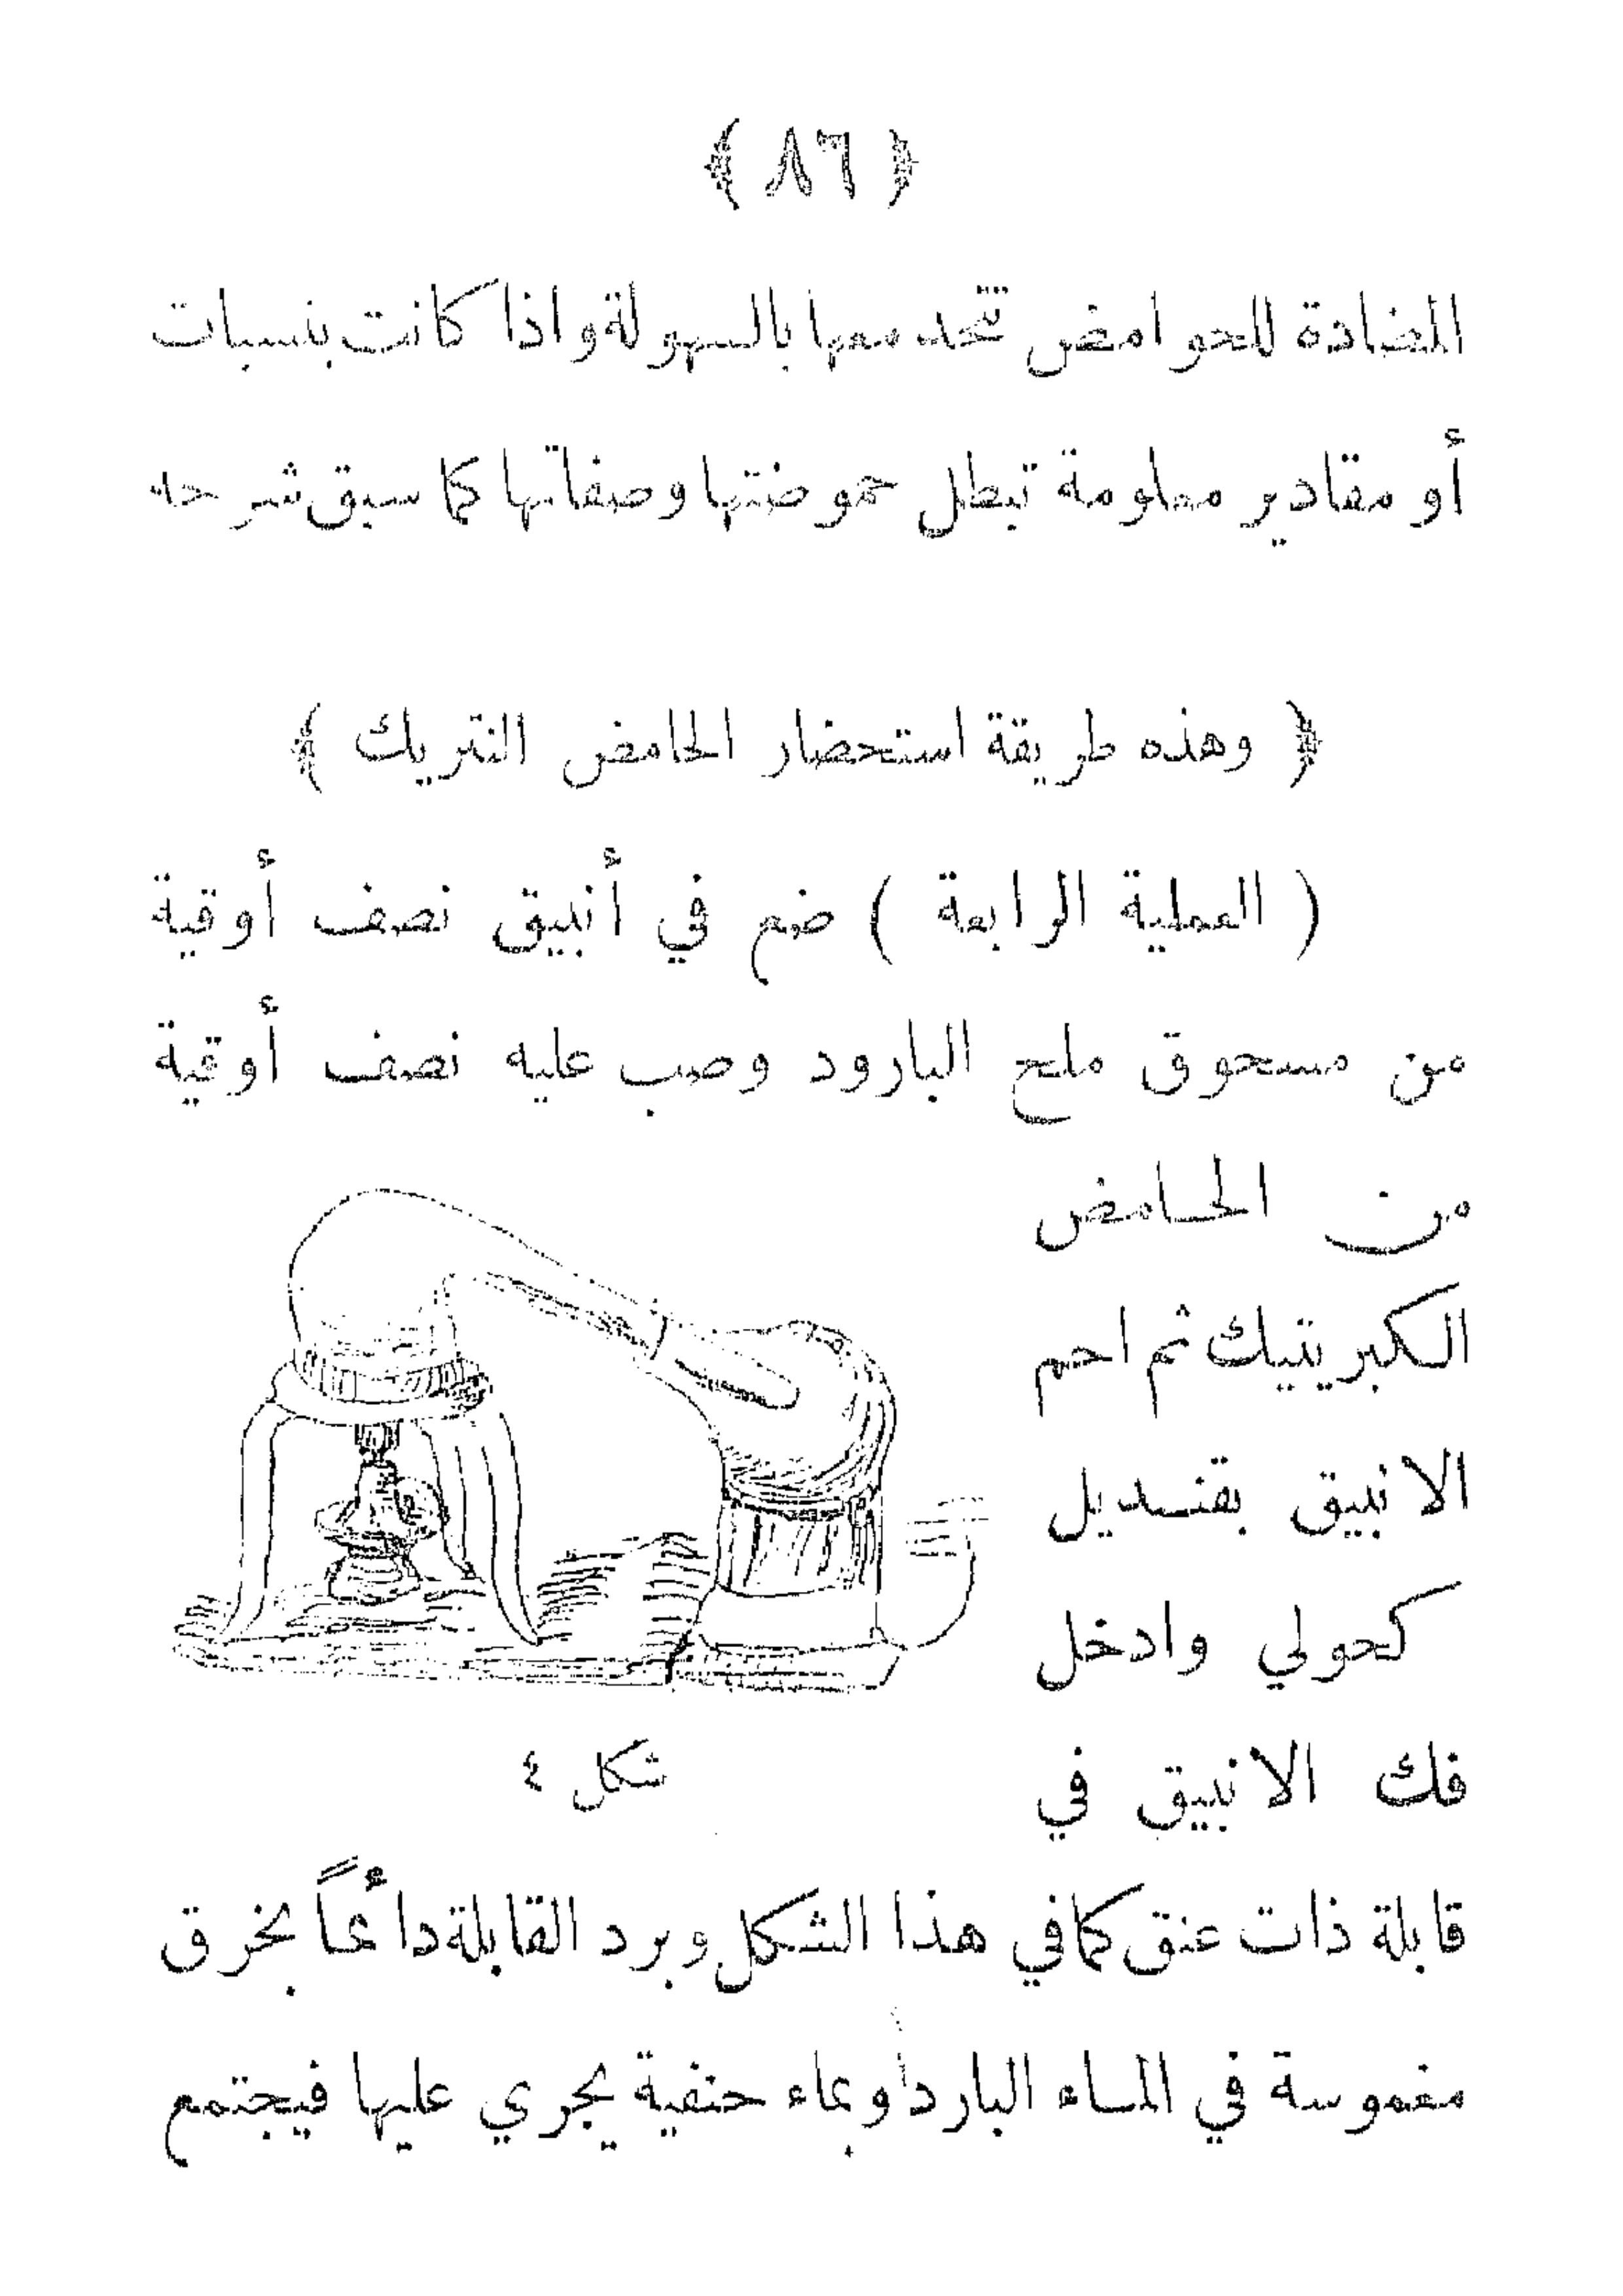 ﴿ ٨٦ ﴾
المضادة للحوامض تتحد معها بالسهولة واذا كانت بنسبات
أو مقادير معلومة تبطل حموضتها وصفاتها كما سبق شرحه
﴿ وهذه طريقة استحضار الحامض النتريك ﴾
( العملية الرابعة ) ضع في أنبيق نصف أوقية
من مسحوق ملح البارود وصب عليه نصف أوقية
من الحامض
الكبريتيك ثم احم
الانبيق بقنديل
كحولي وادخل
فك الانبيق في
شكل ٤
قابلة ذات عنق كما في هذا الشكل وبرد القابلة دائماً بخرق
مغموسة في الماء البارد او بماء حنفية يجري عليها فيجتمع